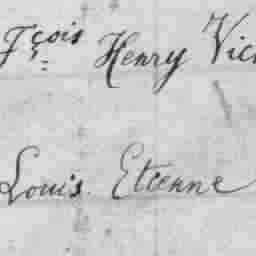 Fçois Henry Vic
Louis Etienne